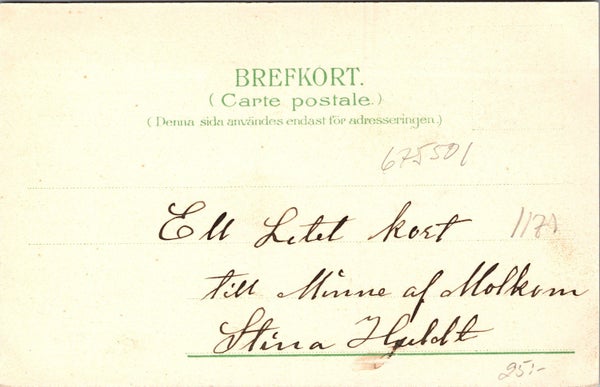 BREFKORT.
(Carte postale.)
(Denna sida användes endast för adresseringen.)
675501
Ett Litet kort
1171
till Minne af Molkom
Stina Huldt
25:-